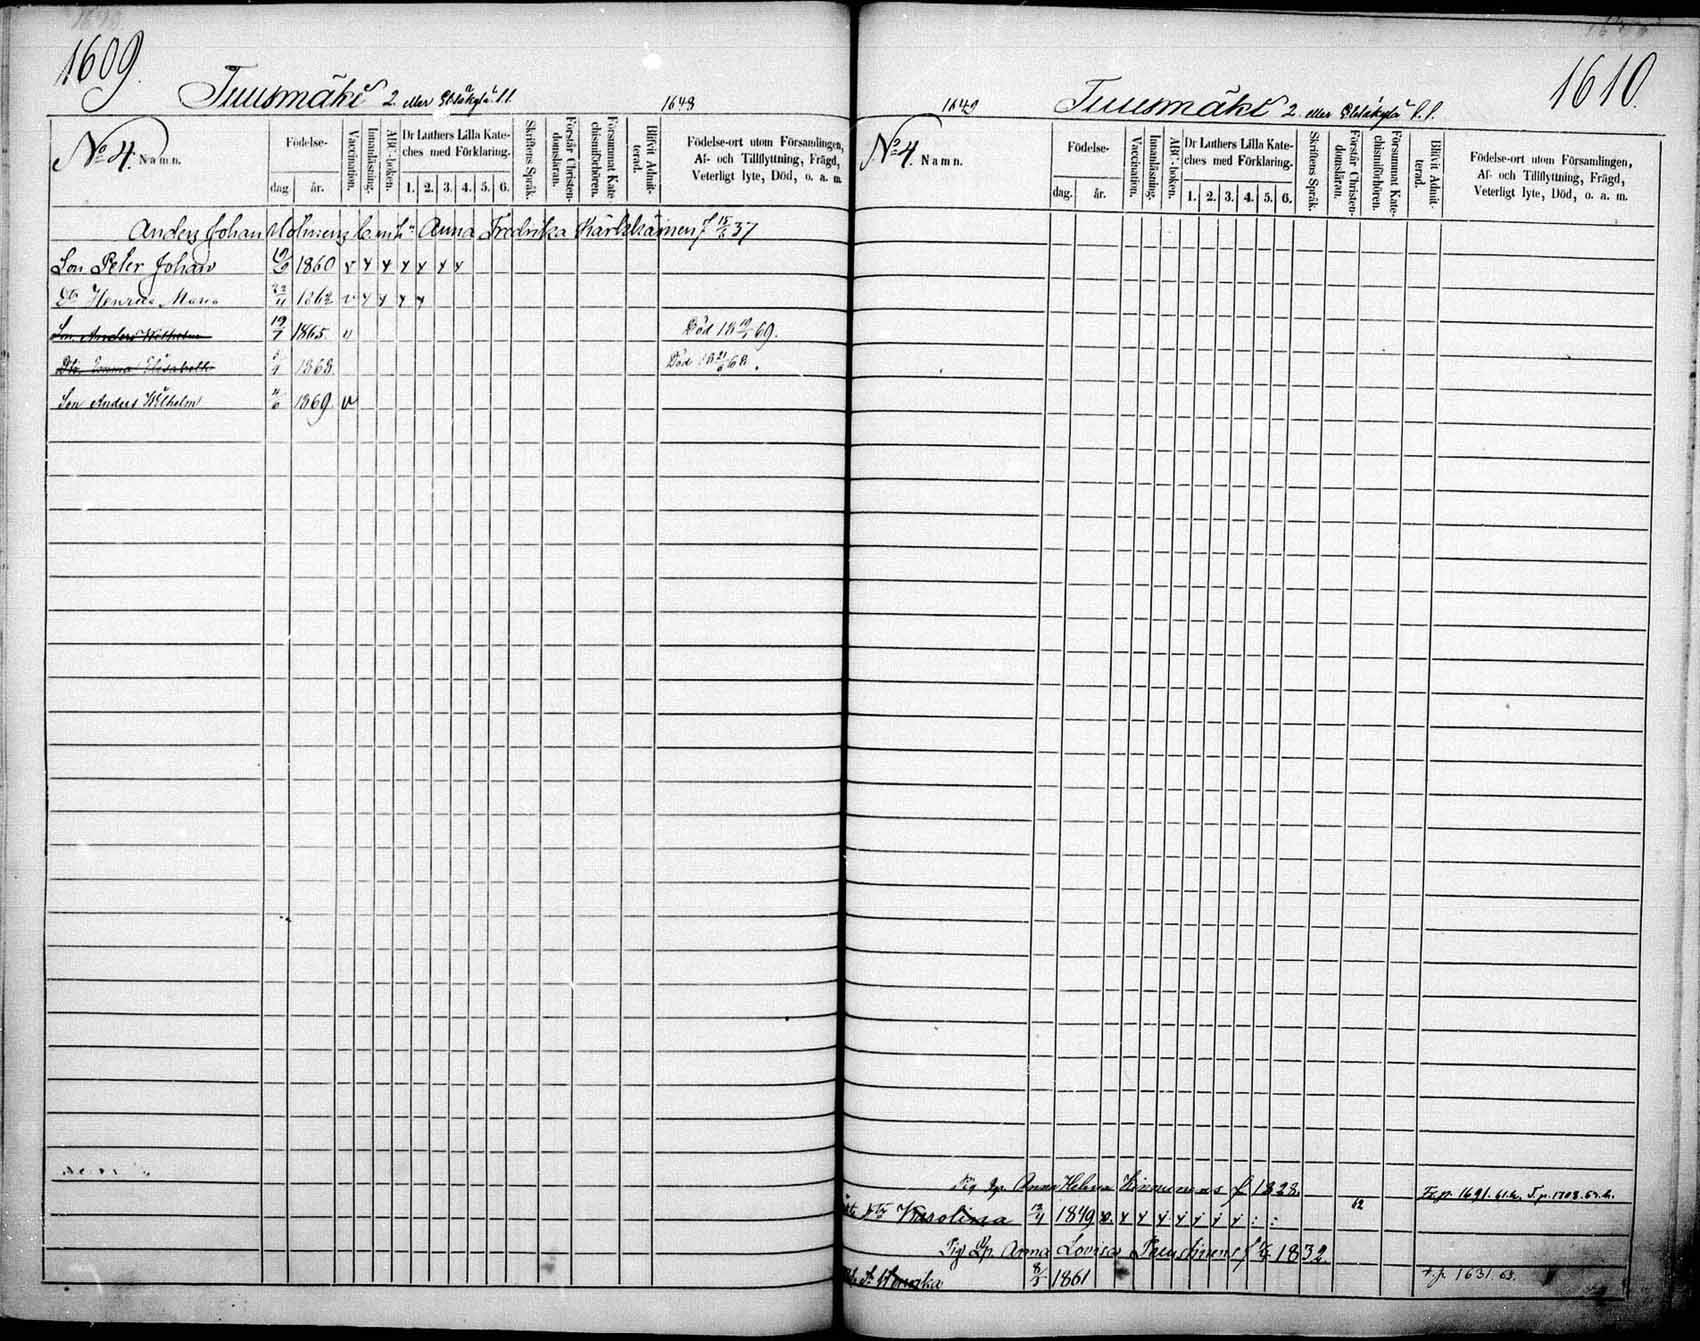 1609.
Tuusmäki 2. eller
1648
No. 4. Namn.
Födelse-
dag.
år.
Vaccination.
Innanläsning.
ABC-boken.
Dr Luthers Lilla Kate-
ches med Förklaring.
1. 2. 3. 4. 5. 6.
Skriftens Språk.
Förstår Christen-
domsläran.
Försummat Kate
chismiförhören.
Blifvit Admit-
terad.
Födelse-ort utom Församlingen,
Af- och Tillflyttning, Frägd,
Veterligt lyte, Död, o. a. m.
Anders Johan Holmens Anna Fredrika Kärkkäinen f 37
Son Peter Johan 1860 v y y y y y y
Maria 1862 v y y y y
Son Anders Wilhelm 19/7 1865. v Död 69.
Emma Elisabeth 1868. Död 68.
Son Anders Wilhelm 1869 v
1610.
1649
Tuusmäki 2. eller
No. 4. Namn.
Födelse-
dag.
år.
Vaccination.
Innanläsning.
ABC-boken.
Dr Luthers Lilla Kate-
ches med Förklaring.
1. 2. 3. 4. 5. 6.
Skriftens Språk.
Förstår Christen-
domsläran.
Försummat Kate-
chismiförhören.
Blifvit Admit-
terad.
Födelse-ort utom Församlingen,
Af- och Tillflyttning, Frägd,
Veterligt lyte, Död, o. a. m.
Anna Helena f 1828.
Karolina 1849 v. y y y y y y y : : 62
Anna Lovisa f 1832.
1861 1631. 63.